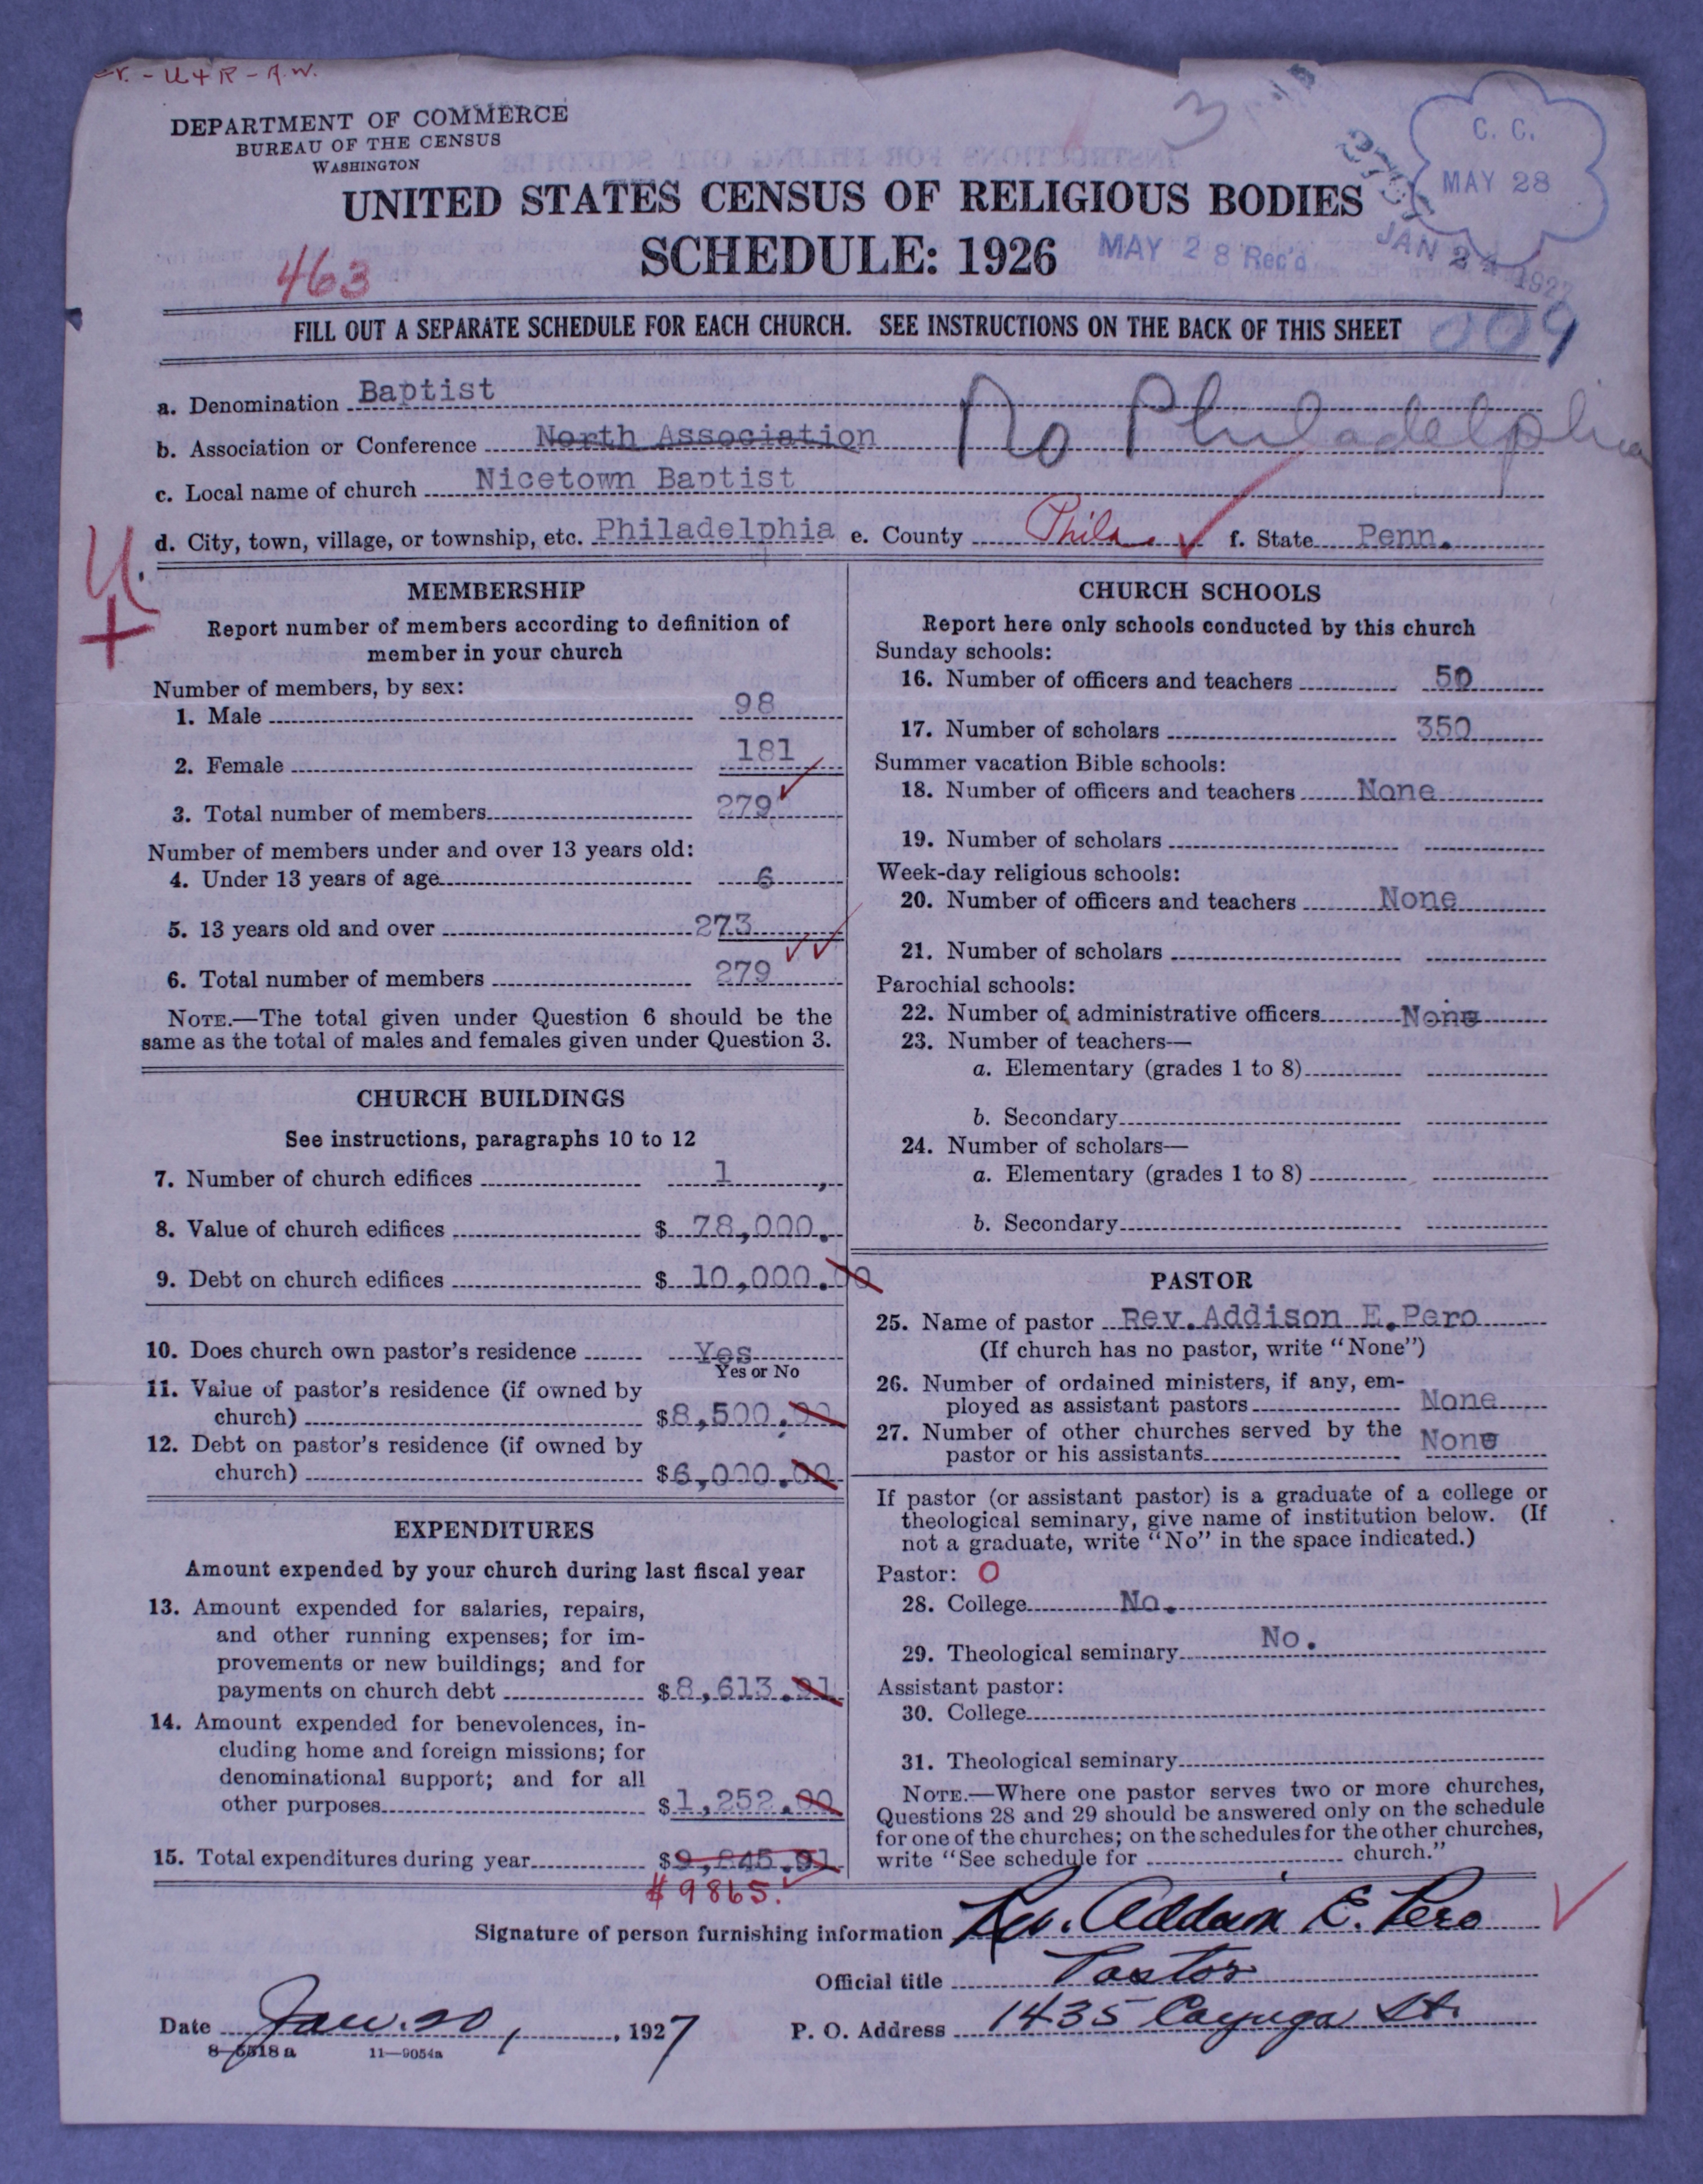 U + R - A.W.
DEPARTMENT OF COMMERCE
BUREAU OF THE CENSUS
WASHINGTON
3
C. C.
MAY 28
UNITED STATES CENSUS OF RELIGIOUS BODIES
SCHEDULE: 1926
MAY 28 Rec'd
JAN 24 1927
463
FILL OUT A SEPARATE SCHEDULE FOR EACH CHURCH. SEE INSTRUCTIONS ON THE BACK OF THIS SHEET
009
a. Denomination Baptist
b. Association or Conference North Association No Philadelphia
c. Local name of church Nicetown Baptist
d. City, town, village, or township, etc. Philadelphia e. County Phila. f. State Penn.
U
+
MEMBERSHIP
Report number of members according to definition of
member in your church
Number of members, by sex:
1. Male 98
2. Female 181
3. Total number of members 279
Number of members under and over 13 years old:
4. Under 13 years of age 6
5. 13 years old and over 273
6. Total number of members 279
NOTE.—The total given under Question 6 should be the
same as the total of males and females given under Question 3.
CHURCH BUILDINGS
See instructions, paragraphs 10 to 12
7. Number of church edifices 1
8. Value of church edifices $ 78,000.
9. Debt on church edifices $ 10,000.00
10. Does church own pastor's residence Yes
Yes or No
11. Value of pastor's residence (if owned by
church) $8,500.00
12. Debt on pastor's residence (if owned by
church) $6,000.00
EXPENDITURES
Amount expended by your church during last fiscal year
13. Amount expended for salaries, repairs,
and other running expenses; for im-
provements or new buildings; and for
payments on church debt $8,613.91
14. Amount expended for benevolences, in-
cluding home and foreign missions; for
denominational support; and for all
other purposes $1,252.00
15. Total expenditures during year $9,845.91
$9865.
CHURCH SCHOOLS
Report here only schools conducted by this church
Sunday schools:
16. Number of officers and teachers 50
17. Number of scholars 350
Summer vacation Bible schools:
18. Number of officers and teachers None
19. Number of scholars
Week-day religious schools:
20. Number of officers and teachers None
21. Number of scholars
Parochial schools:
22. Number of administrative officers None
23. Number of teachers—
a. Elementary (grades 1 to 8)
b. Secondary
24. Number of scholars—
a. Elementary (grades 1 to 8)
b. Secondary
PASTOR
25. Name of pastor Rev.Addison E.Pero
(If church has no pastor, write "None")
26. Number of ordained ministers, if any, em-
ployed as assistant pastors None
27. Number of other churches served by the
pastor or his assistants None
If pastor (or assistant pastor) is a graduate of a college or
theological seminary, give name of institution below. (If
not a graduate, write "No" in the space indicated.)
Pastor: O
28. College No.
29. Theological seminary No.
Assistant pastor:
30. College
31. Theological seminary
NOTE.—Where one pastor serves two or more churches,
Questions 28 and 29 should be answered only on the schedule
for one of the churches; on the schedules for the other churches,
write "See schedule for church."
Signature of person furnishing information Rev. Addison E. Pero
Official title Pastor
Date Jan. 20, 1927 P. O. Address 1435 Cayuga St.
8-5518 a 11—9054a